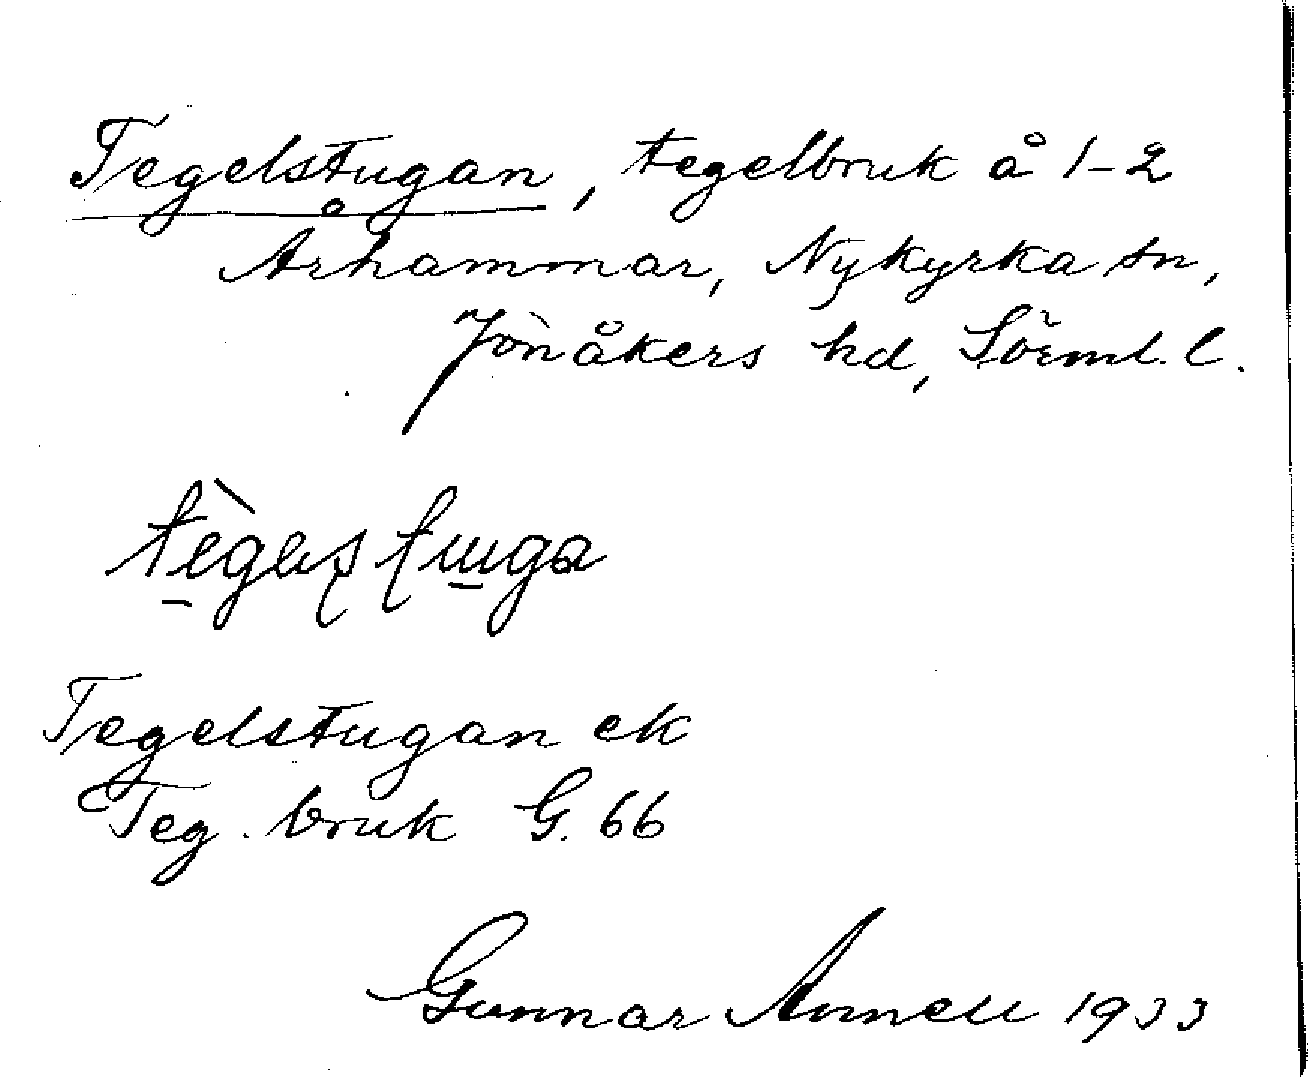 Tegelstugan, tegelbruk å 1-2
Århammar, Nykyrka sn,
Jönåkers hd, Sörml. l.
Tegelstugan ek
Teg. bruk G. 66
Gunnar Annell 1933